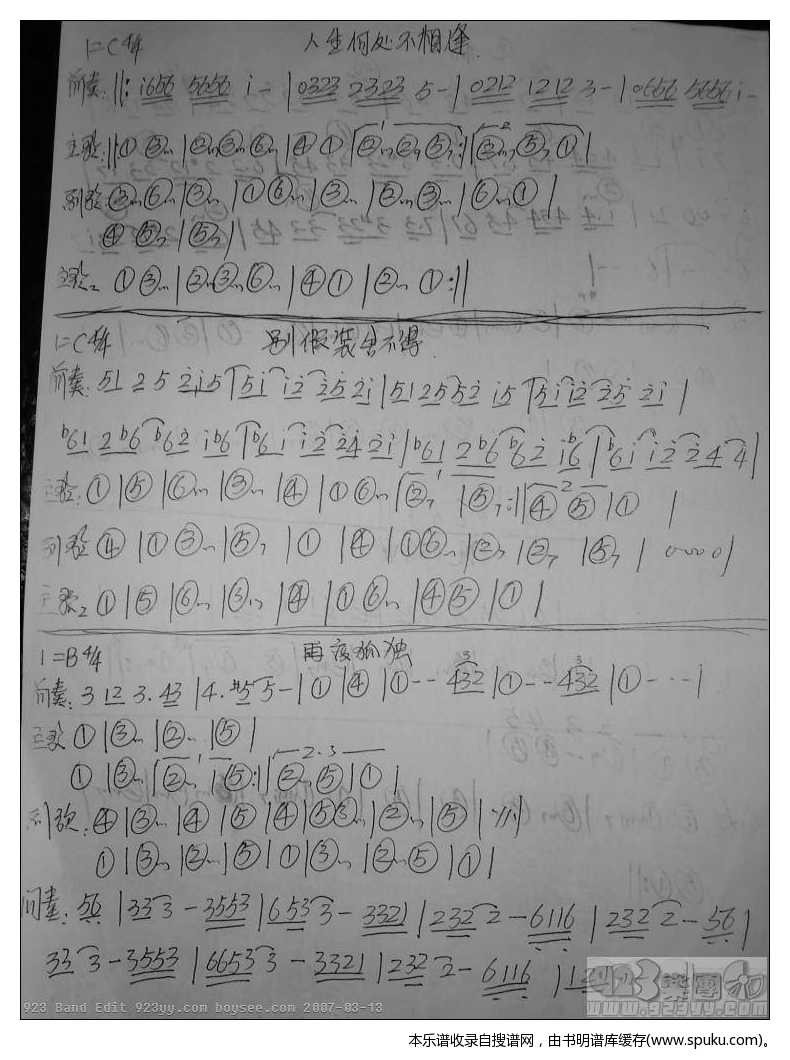 1=C 4/4 人生何处不相逢
前奏: ||: i656 5656 i - | 0323 2323 5 - | 0212 1212 3 - | 0656 5656 i -
主歌: ||: ① ③m | ②m ③m ⑥m | ④ ① | ②m ②m ⑤7 :|| ②m7 ⑤7 ① |
副歌: ③m ⑥m | ③m | ① ⑥m | ③m | ②m ③m | ⑥m ① |
④ ⑤7 | ⑤7 |
主歌2 ① ③m | ②m ③m ⑥m | ④ ① | ②m ① :||
1=C 4/4 别假装舍不得
前奏: 51 2 5 2i5 | 5i i2 25 2i | 51 25 52 i5 | 5i i2 25 2i |
b61 2 b6 b62 ib6 | b6i i2 24 2i | b61 2b6 b62 ib6 | b6i i2 24 4 |
主歌: ① | ⑤ | ⑥m | ③m | ④ | ① ⑥m | ②7 | ⑤7 :|| ④ ⑤ | ① |
副歌 ④ | ① ③m | ⑤7 | ① | ④ | ① ⑥m | ②7 | ②7 | ⑤7 | 0000 |
主歌2 ① | ⑤ | ⑥m | ③m | ④ | ① ⑥m | ④ ⑤ | ① |
1=B 4/4 再度孤独
前奏: 3 12 3. 43 | 4. #5 5 - | ① | ④ | ① - - 432 | ① - - 432 | ① - - - |
主歌 ① | ③m | ②m | ⑤ |
① | ③m | ②m | ⑤ :|| ②m ⑤ | ① |
副歌: ④ | ③m | ④ | ⑤ | ④ | ⑤ ③m | ②m | ⑤ |
① | ③m | ②m | ⑤ | ① | ③m | ②m ⑤ | ① |
间奏: 56 | 33 3 - 3553 | 653 3 - 3321 | 232 2 - 6116 | 232 2 - 56 |
33 3 - 3553 | 6653 3 - 3321 | 232 2 - 6116 | 1
923 Band Edit 923yy.com boysee.com 2007-03-13
www.923yy.com
本乐谱收录自搜谱网，由书明谱库缓存(www.spuku.com)。